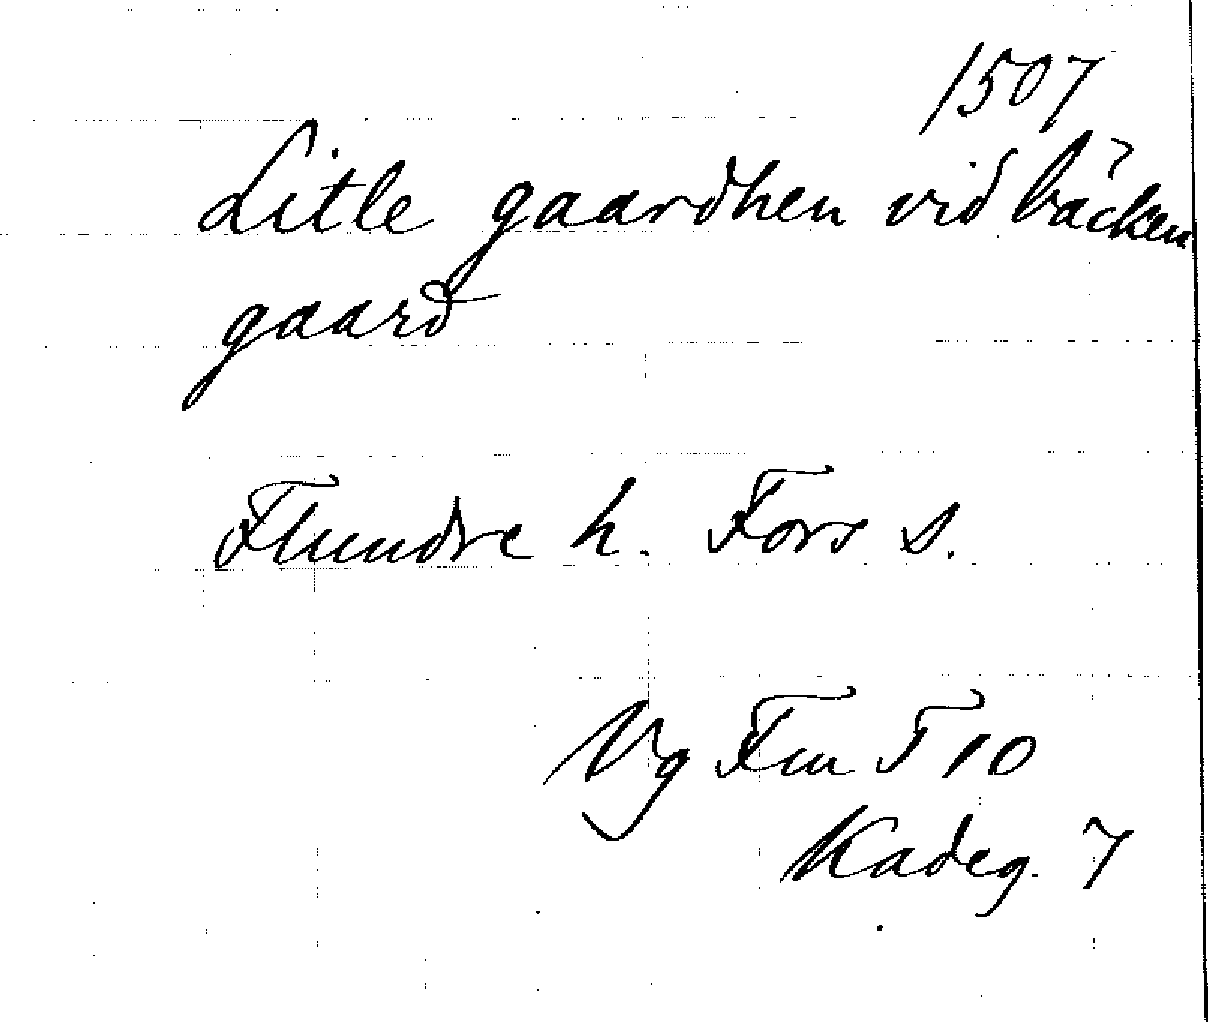 1507
Litle gaardhen vid bäcken
gaard
Flundre h. Fors s.
Vg Fmt 10
Kadeg. 7